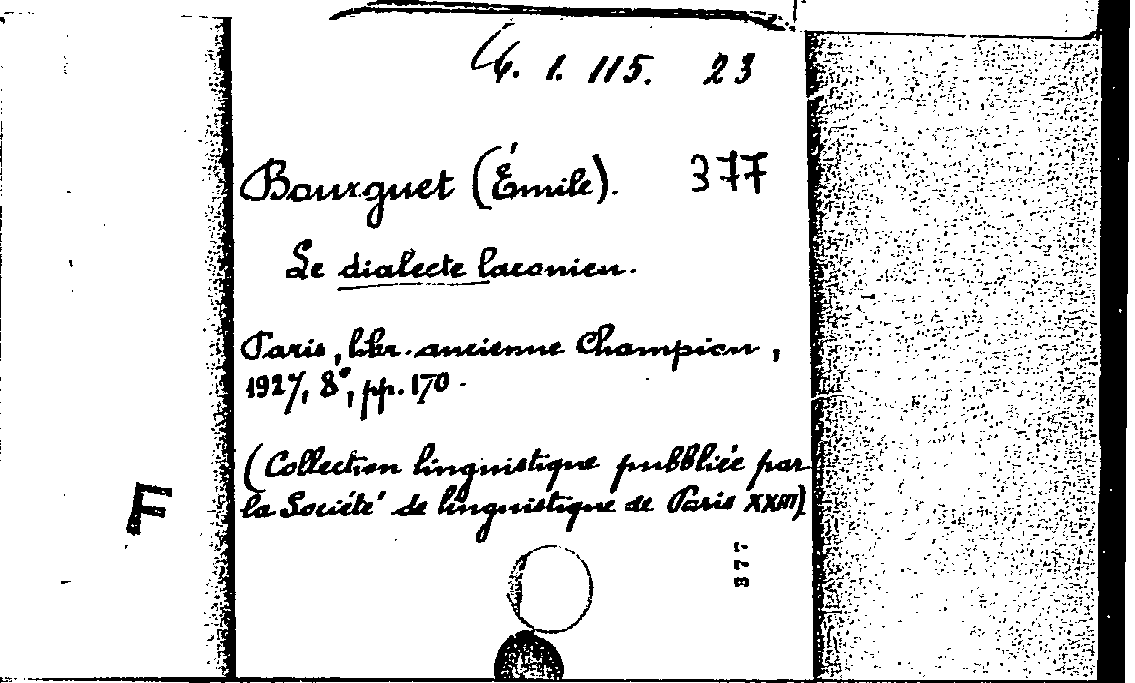 6. 1. 115. 23
Bourguet (Émile). 377
Le dialecte laconien.
Paris, libr. ancienne Champion,
1927, 8°, pp. 170.
(Collection linguistique pubbliée par
la Société de linguistique de Paris XXIII)
F
377